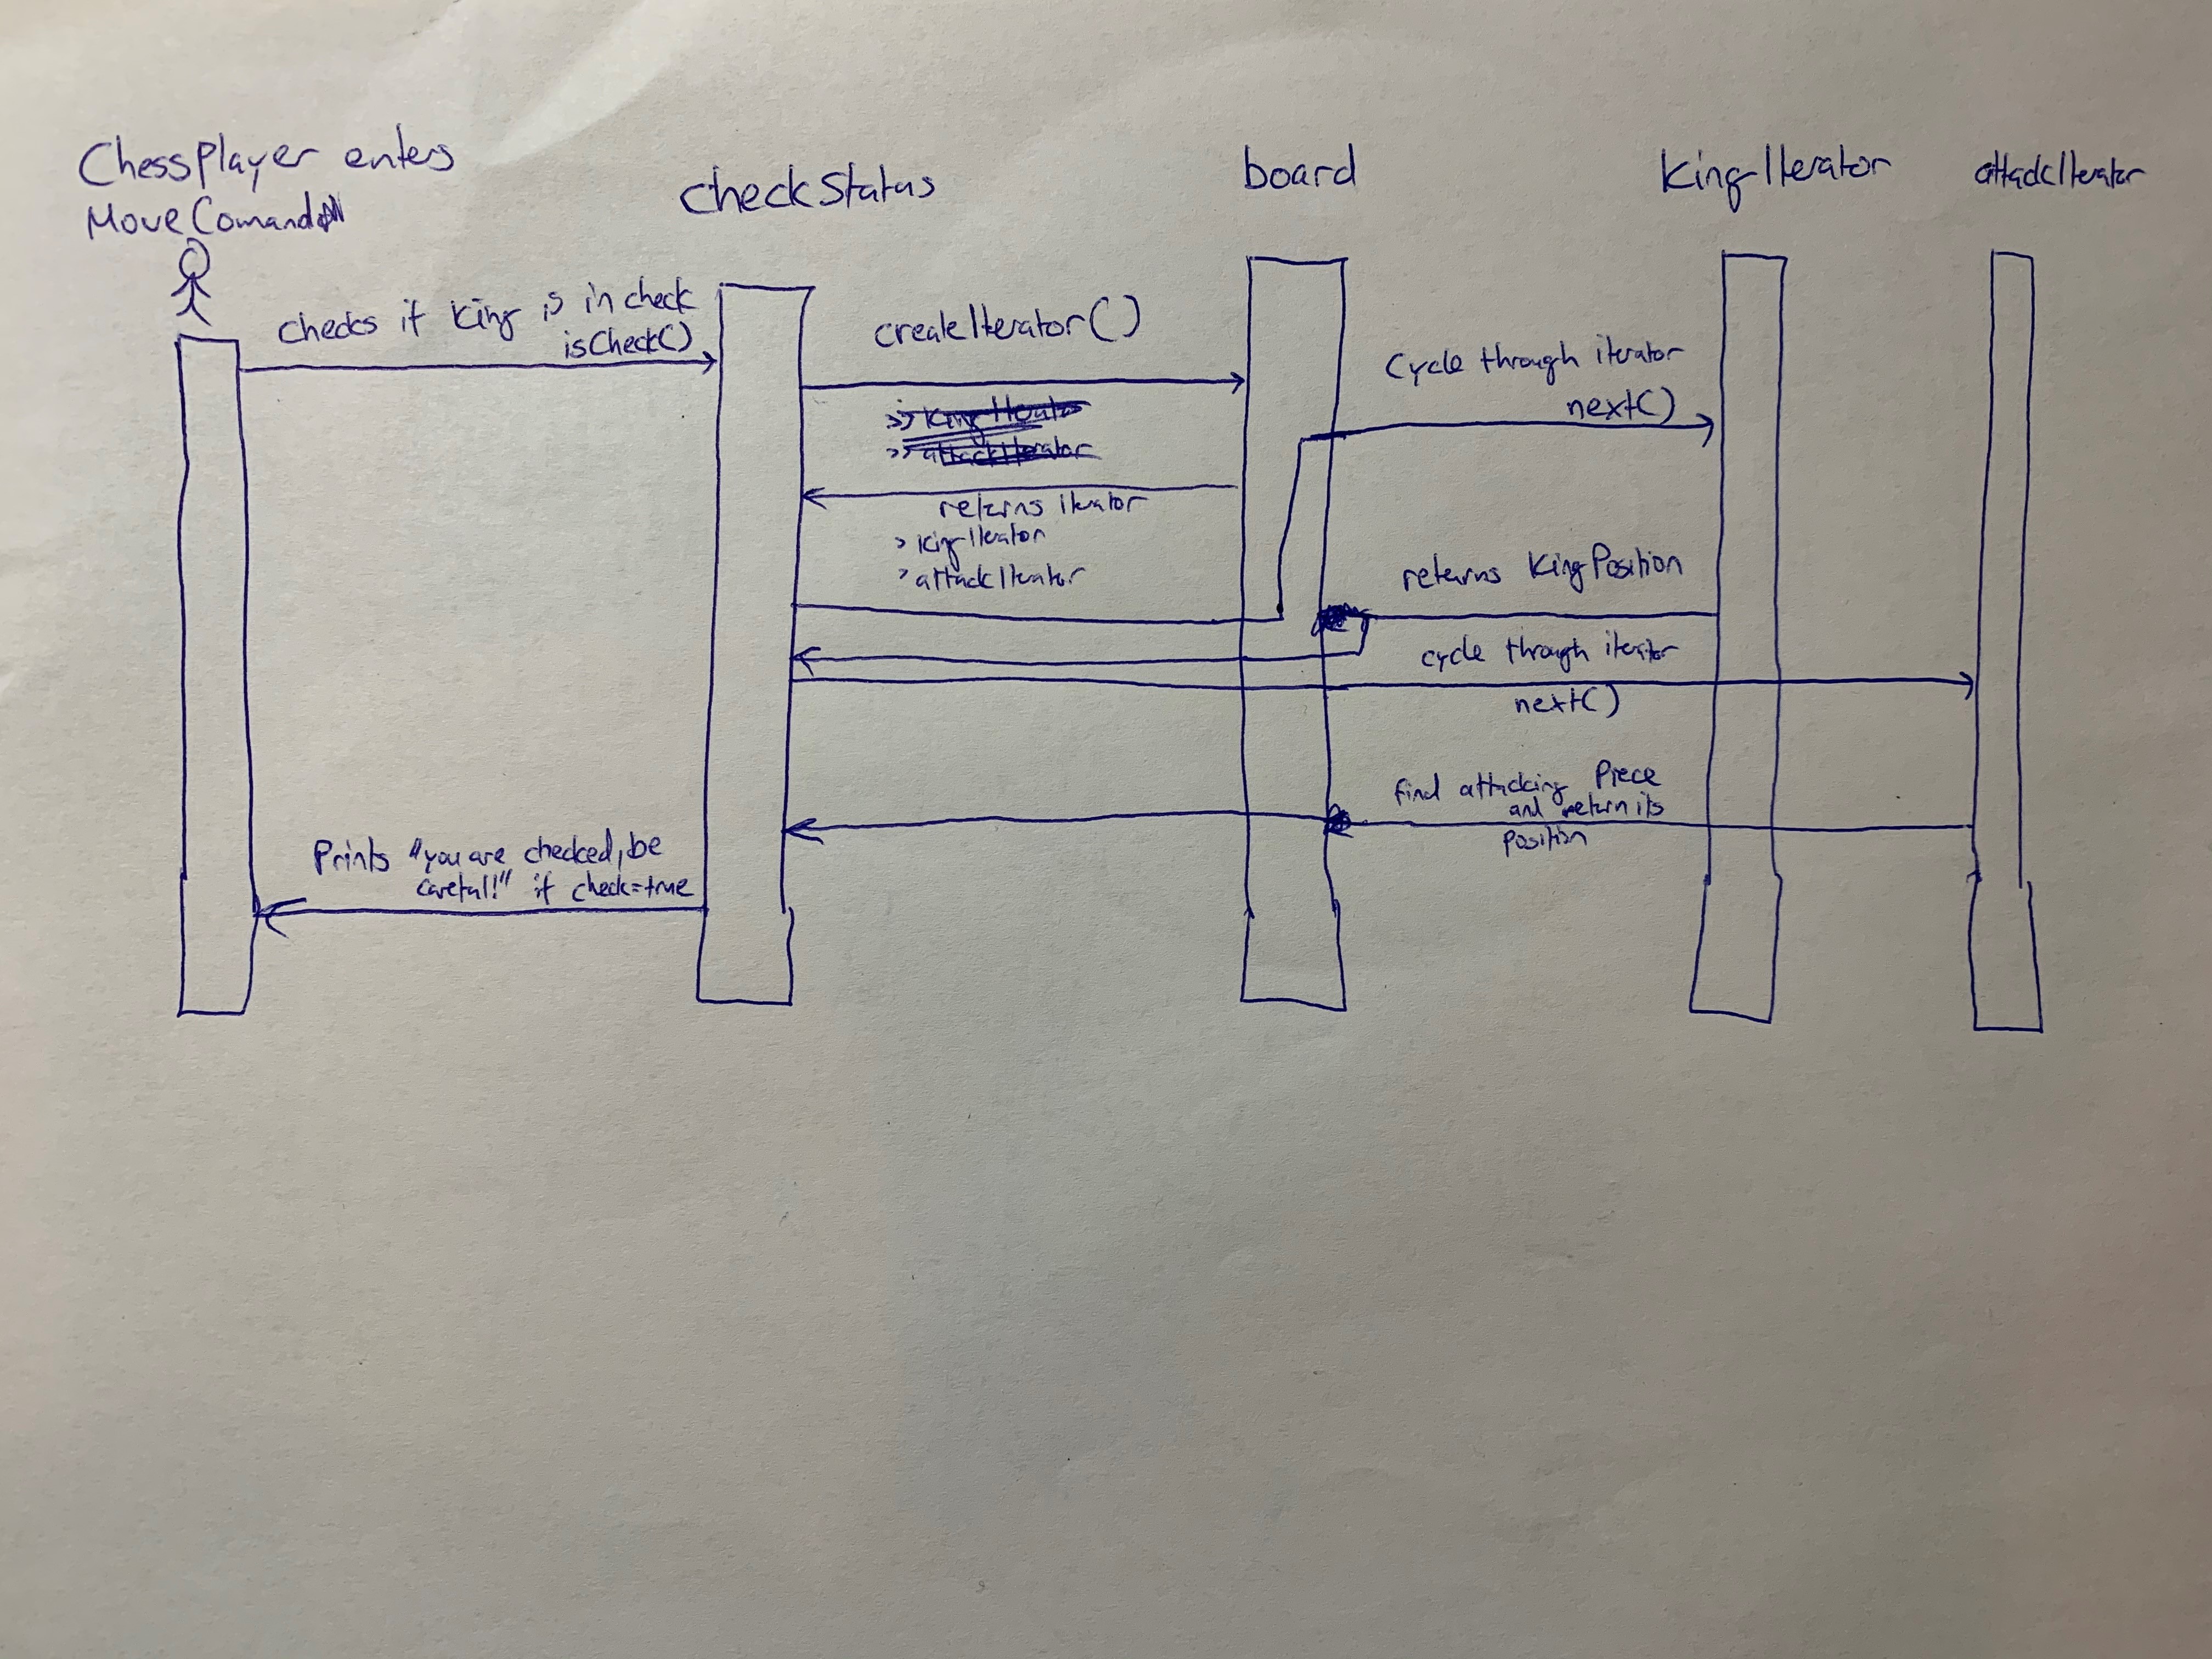 ChessPlayer enters
Move Comand
checkStatus
board
KingIterator
attackIterator
Checks if King is in check
isCheck()
createIterator()
Cycle through iterator
next()
>> KingIterator
>> attackIterator
returns iterator
> KingIterator
> attackIterator
returns KingPosition
cycle through iterator
next()
find attacking Piece
and return its
Position
Prints "you are checked, be
careful!" if check=true